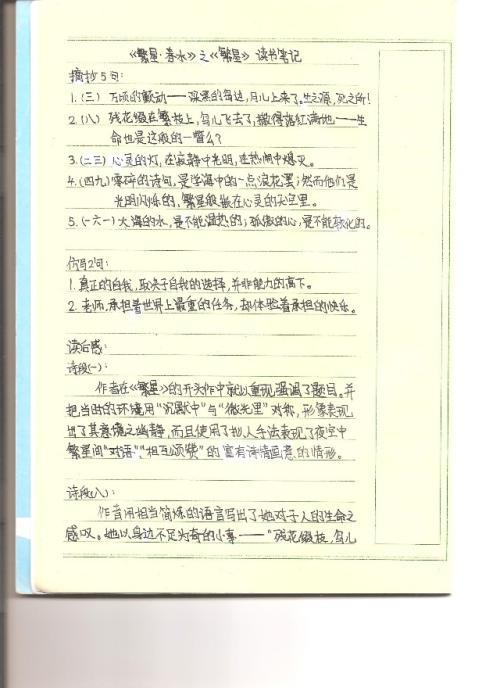 《繁星·春水》之《繁星》读书笔记
摘抄5句：
1.(三) 万顷的颤动——深黑的岛边,月儿上来了,生之源,死之所!
2.(八) 残花缀在繁枝上,鸟儿飞去了,撒得落红满地——生
命也是这般的一瞥么?
3.(二三) 心灵的灯,在寂静中光明,在热闹中熄灭。
4.(四九) 零碎的诗句,是学海中的一点浪花罢;然而他们是
光明闪烁的,繁星般嵌在心灵的天空里。
5.(一六一) 大海的水,是不能温热的;孤傲的心,是不能软化的。
仿写2句:
1.真正的自我,取决于自我的选择,并非能力的高下。
2.老师,承担着世界上最重的任务,却体验着承担的快乐。
读后感:
诗段(一):
作者在《繁星》的开头作中就以重现强调了题目。并
把当时的环境用“沉默中”与“微光里”对称,形象表现
出了其意境之幽静,而且使用了拟人手法表现了夜空中
繁星间“对语”“相互颂赞”的富有诗情画意的情形。
诗段(八):
作者用相当简炼的语言写出了她对于人的生命之
感叹。她以身边不足为奇的小事——“残花缀枝,鸟儿